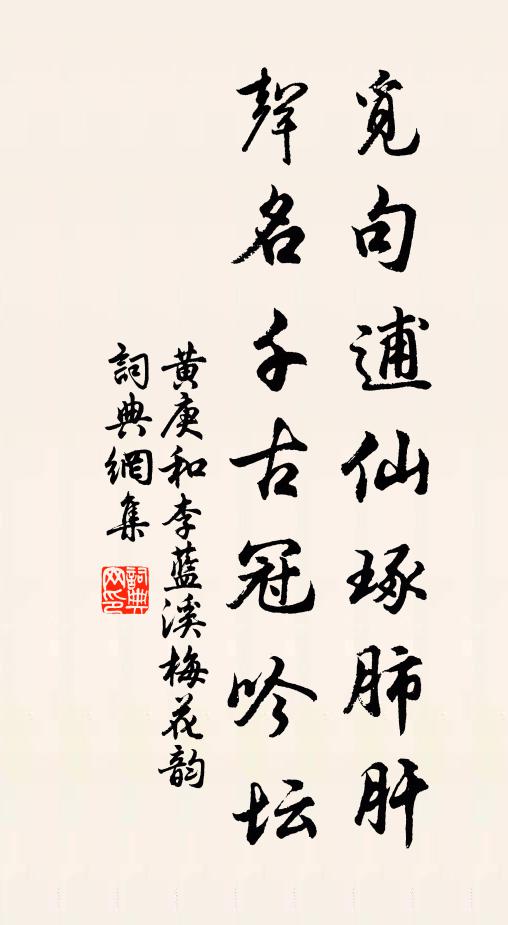 覓句逋仙琢肺肝
聲名千古冠吟坛
黄庚和李蓝溪梅花韵
詞典網集
詞典網印